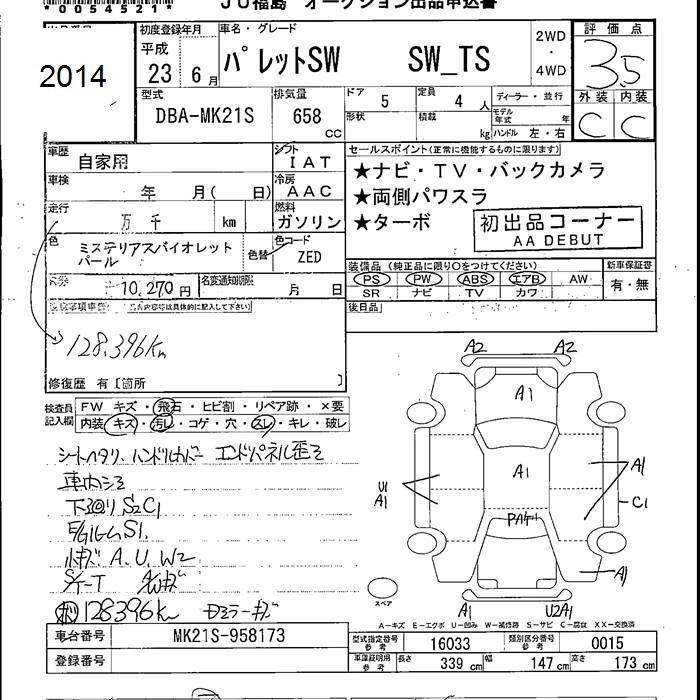 *0054521*
JU福島 オークション出品申込書
2014
初度登録年月
平成
23 6月
車名・グレード
パレットSW SW_TS
2WD
・
4WD
評価点
3.5
外装 内装
C C
型式
DBA-MK21S
排気量
658
CC
ドア
5
定員
4 人
形状
積載
kg
ディーラー・並行
モデル年式 年
ハンドル 左・右
車歴
自家用
シフト
IAT
車検
年 月( 日)
冷房
AAC
走行
万 千 km
燃料
ガソリン
色
ミステリアスバイオレット
パール
色替
色コード
ZED
10,270円
名変通知期限
月 日
セールスポイント(正常に機能するものに限ります)
★ナビ・TV・バックカメラ
★両側パワスラ
★ターボ
初出品コーナー
AA DEBUT
装備品(純正品に限り○をつけてください)
PS PW ABS エアB AW
SR ナビ TV カワ
新車保証書
有・無
後日品
128,396Km
修復歴 有〔箇所 〕
検査員
記入欄
FW キズ・飛石・ヒビ割・リペア跡・×要
内装 キズ・汚レ・コゲ・穴・スレ・キレ・破レ
シートヘタリ、ハンドルカバー エンドパネル歪ミ
車内シミ
下回リ S2C1
E/gルームS1.
小キズ A.U.W2
128396Km
A2 A2
A1
A1
U1
A1
A1
C1
A1
A1 U2A1
スペア
A−キズ E−エクボ U−凹み W−補修跡 S−サビ C−腐食 XX−交換済
車台番号
MK21S-958173
登録番号
型式指定番号
参考
16033
類別区分番号
参考
0015
車庫証明用
参考
長さ 339 cm
幅 147 cm
高さ 173 cm